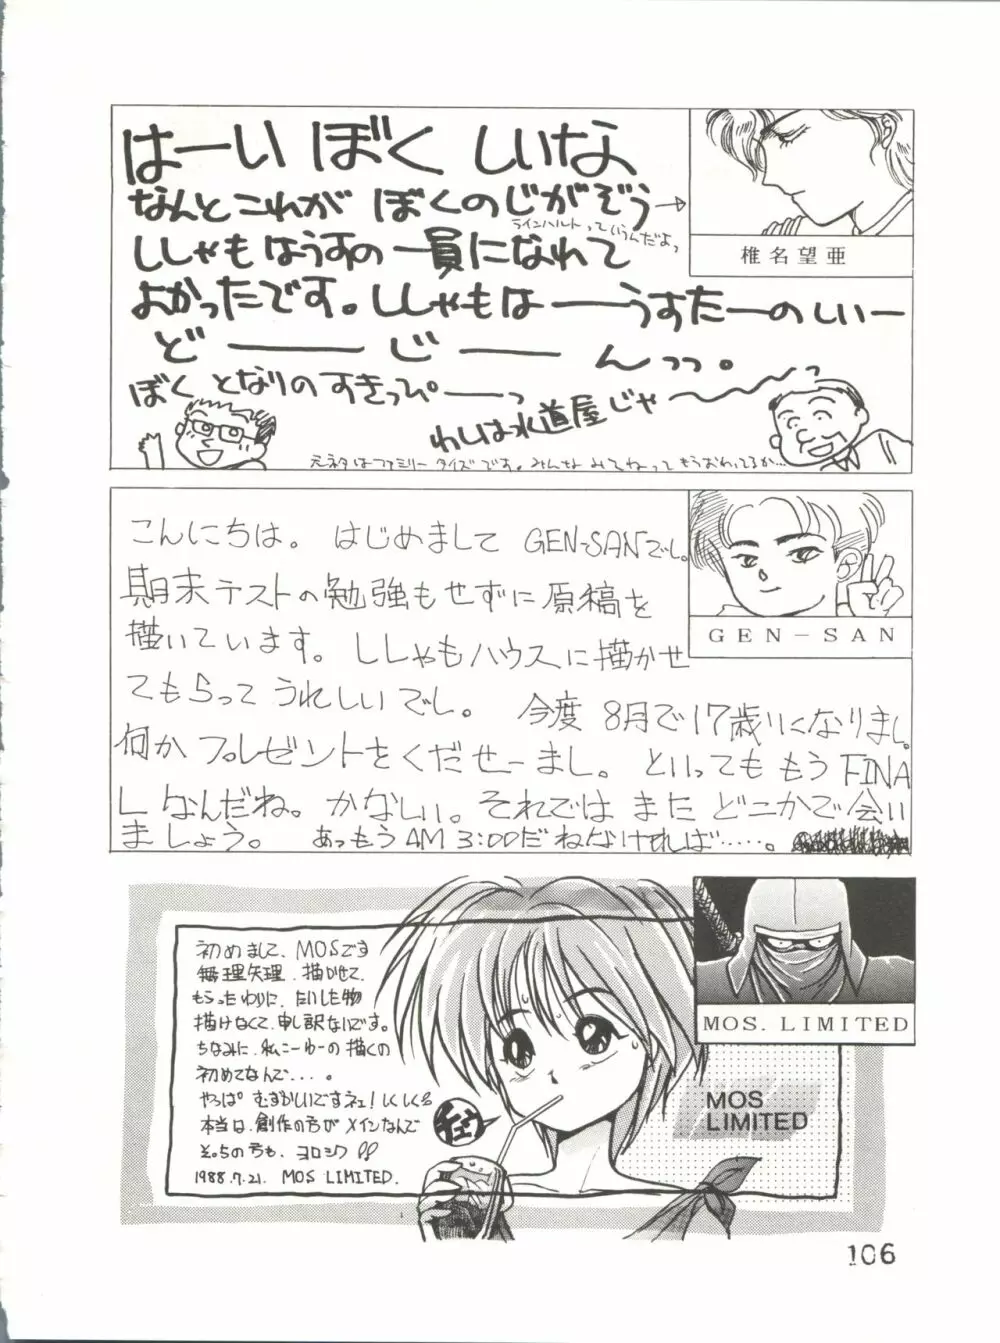 はーい ぼく しいな
なんとこれが ぼくのじがぞう→
ラインハルトっていうんだよっ
ししゃもはうすの一員になれて
よかったです。ししゃもは――うすたーのしいー
ど――じ――んっっ。
ぼく となりのすきっぴ――っ
わしは水道屋じゃ～～っ
元ネタはファミリータイズです。みんなみてねってもうおわってるか…
椎名望亜
こんにちは。 はじめまして GEN-SANでし。
期末テストの勉強もせずに原稿を
描いています。ししゃもハウスに描かせ
てもらって うれしいでし。 今度 8月で17歳りになりまし。
何か プレゼントをくだせーまし。 といっても もう FINA
L なんだね。かなしい。それでは また どこかで会い
ましょう。 あっもうAM 3:00だ ねなければ……。
GEN-SAN
初めまして、MOSです
無理矢理、描かせて、
もらったわりに、たいした物
描けなくて、申し訳ないです。
ちなみに、私こーゆーの描くの
初めてなんで....。
やっぱ むずかしいですネェ！しくしく
本当は、創作の方が メインなんで
そっちの方も、ヨロシク
1988.7.21. MOS LIMITED.
MOS. LIMITED
MOS
LIMITED
106